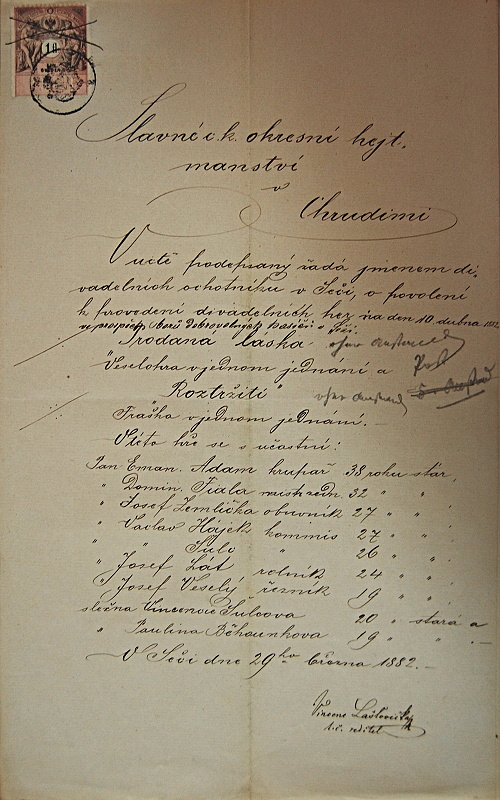 10
Slavné c.k. okresní hejt,
manství
v
Chrudimi
V uctě podepsaný žádá jmenem di,
vadelních ochotníku v Seči, o povolení
k provedení divadelních her na den 10 dubna 1882.
ve prospěch sboru dobrovolných hasičů v Seči.
"Prodana laska
Veselohra v jednom jednání a
Roztržití"
Fraška v jednom jednání.–
V této hře se s učastní:
Pan Eman. Adam krupař 38 roku stár,
" Domin. Fiala mistr zedn. 32 " "
" Josef Zemlička obuvník 27 " "
" Vaclav Hájek kommis 27 " "
" " Šulc " 26 " "
" Josef Lát rolník 24 " "
" Josef Veselý řezník 19 " "
slečna Vincencie Šulcova 20 " stará a
" Paulina Běhounkova 19 " " .–
V Seči dne 29ho března 1882.–
Vincenc Laštovička
t.č. reditel